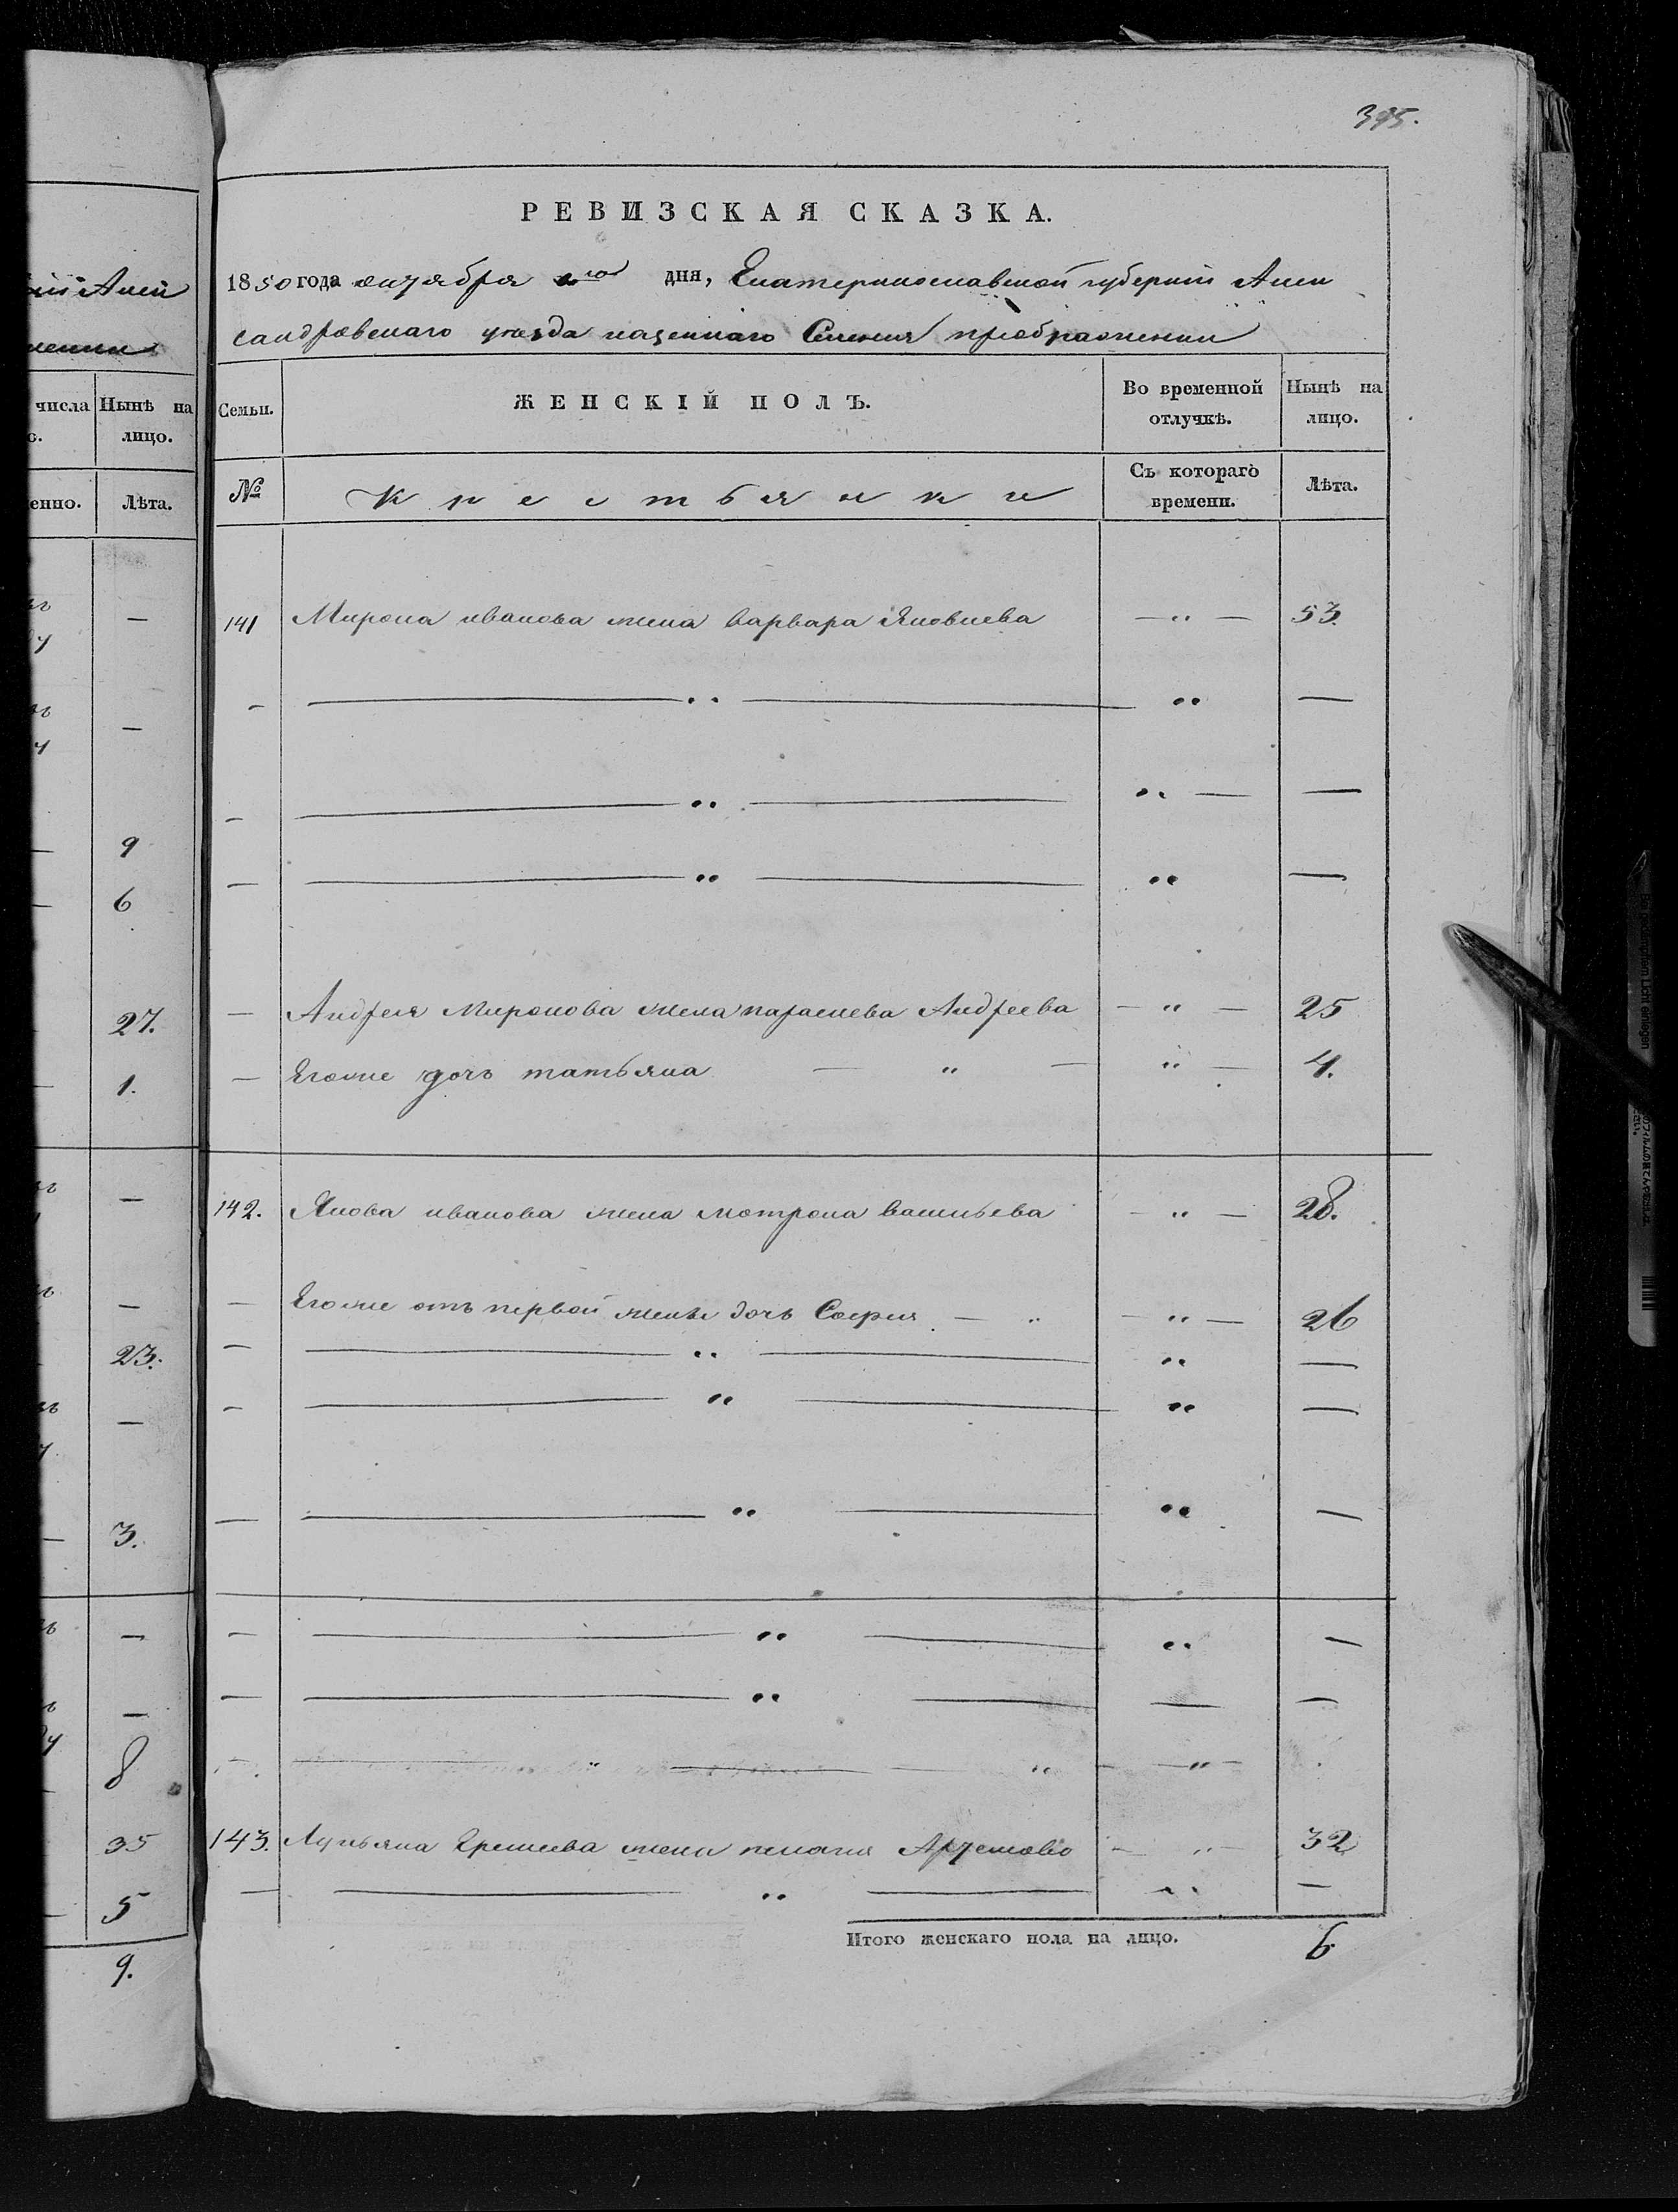 395.
РЕВИЗСКАЯ СКАЗКА.
1850 года октября дня, Екатеринославской губернии Алек
сандровскаго уезда казеннаго Селения преображенки
Семьи.
ЖЕНСКІЙ ПОЛЪ.
Во временной отлучкѣ.
Нынѣ на лицо.
№
Крестьянки
Съ котораго времени.
Лѣта.
141 Мирона иванова жена варвара Яковлева — " — 53.
— " — " —
— " — " — —
— " — " —
— Андрея Миронова жена параскева Андреева — " — 25
— Егоже дочь татьяна — " — " — 4.
142. Якова иванова жена мотрона васильева — " — 28.
— Егоже отъ первой жены дочь София — " — " — 26
— " — " —
— " — " —
— " — " —
— " — " —
— " — — —
— " — " — " —
143. Лукьяна жена пелагия — " — 32
— " — " —
Итого женскаго пола на лицо. 6
числа
Нынѣ на лицо.
енно.
Лѣта.
—
—
9
6
27.
1.
—
—
23.
—
3.
—
—
8
35
5
9.